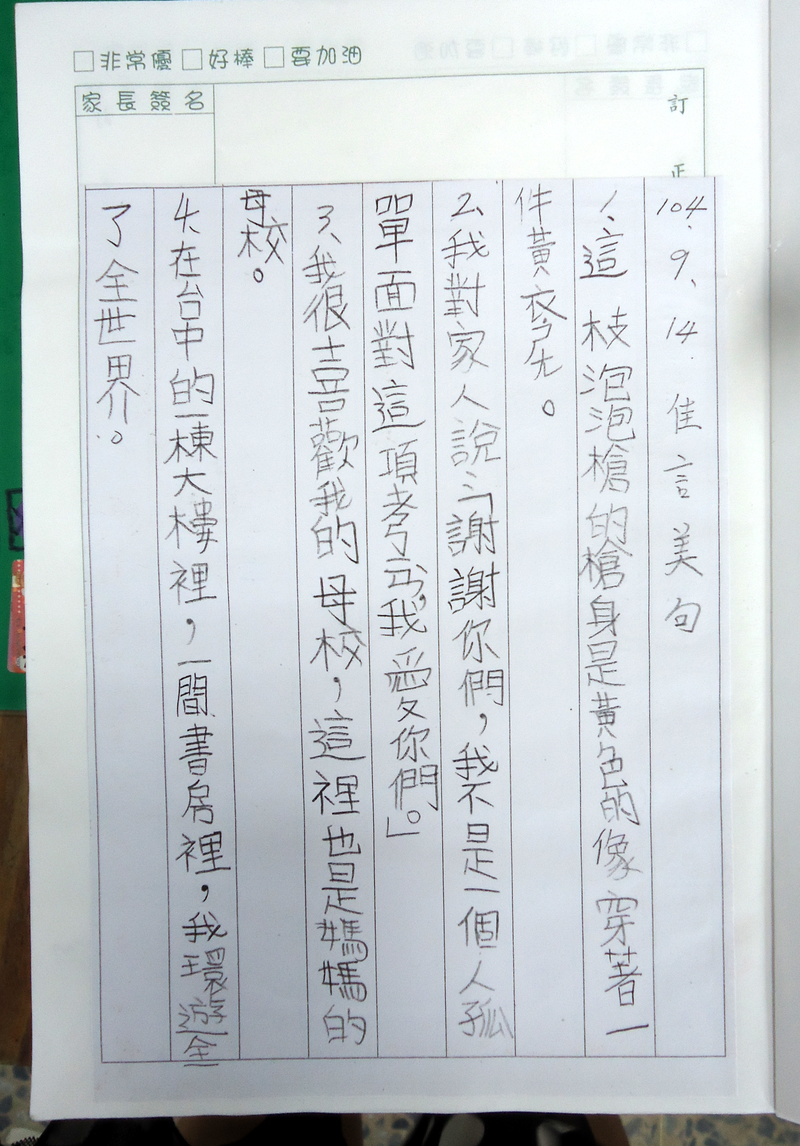 □非常優 □好棒 □要加油
家長簽名
訂正
104.9.14. 佳言美句
1、這枝泡泡槍的槍身是黃色的像穿著一
件黃衣
2、我對家人說：「謝謝你們，我不是一個人孤
單面對這項考試，我愛你們。」
3、我很喜歡我的母校，這裡也是媽媽的
母校。
4、在台中的一棟大樓裡，一間書房裡，我環遊全
了全世界。